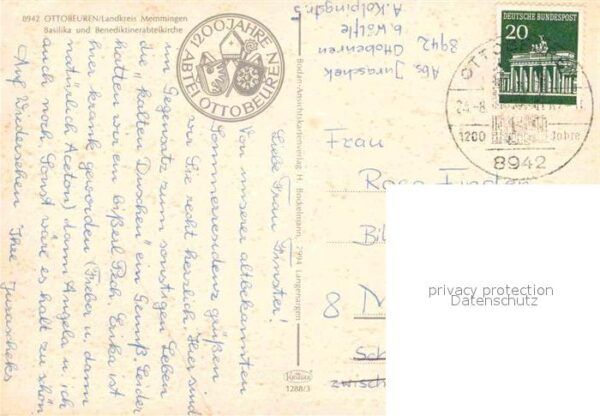 8942 OTTOBEUREN/Landkreis Memmingen
Basilika und Benediktinerabteikirche
1200 JAHRE
ABTEI OTTOBEUREN
Liebe Frau Finster!
Von unserer altbekannten
Sommerresidenz grüßen
wir Sie recht herzlich. Hier sind
im Gegensatz zum sonstigen Leben
die "kalten Duschen" ein Genuß. Leider
hatten wir ein bißerl Pech. Erika ist
hier krank geworden (Fieber u. dann
natürlich Aceton) dann Angela u. ich
auch noch. Sonst wäre es halt zu schön
Auf Wiedersehen Ihre Jurascheks
Bodan-Ansichtskartenverlag H. Bockelmann, 7994 Langenargen
KRÜGER
1288/3
Abs. Juraschek
b. Wölfle
8942 Ottobeuren
A. Kolpingstr. 5
DEUTSCHE BUNDESPOST
20
OTTOBE
24.-8.
1200 Jahre
8942
Frau
Rosa
Bil
8 M
Sch
zwisch
privacy protection
Datenschutz